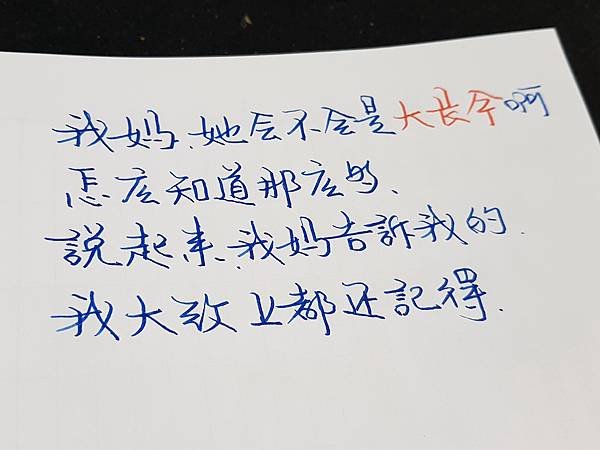 我妈、她会不会是大長今啊
怎么知道那么多、
説起来、我妈告訴我的、
我大致上都还記得、